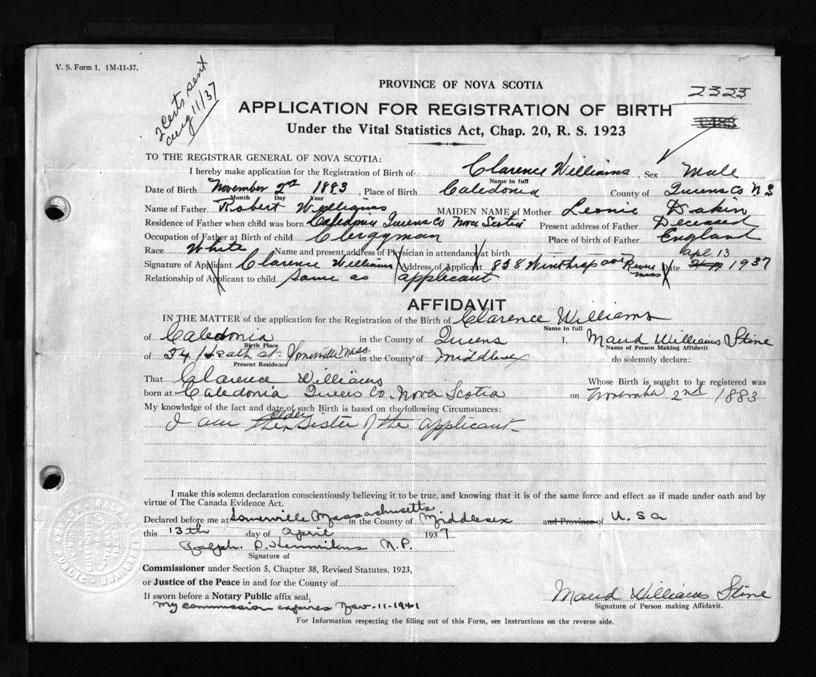 V. S. Form 1. 1M-11-37.
2 certs sent
Aug 11/37
PROVINCE OF NOVA SCOTIA
2323
APPLICATION FOR REGISTRATION OF BIRTH
Under the Vital Statistics Act, Chap. 20, R. S. 1923
TO THE REGISTRAR GENERAL OF NOVA SCOTIA:
I hereby make application for the Registration of Birth of Clarence Williams, Sex Male
Name in full
Date of Birth November 2nd 1883, Place of Birth Caledonia County of Queens Co N S
Month Day Year
Name of Father Robert Williams MAIDEN NAME of Mother Leonie Dakin
Residence of Father when child was born Caledonia Queens Co Nova Scotia Present address of Father Deceased
Occupation of Father at Birth of child Clergyman Place of birth of Father England
Race White Name and present address of Physician in attendance at birth
Apl 13
Signature of Applicant Clarence Williams Address of Applicant 858 Winthrop ave Revere Mass Date 1937
Relationship of Applicant to child Same as applicant
AFFIDAVIT
IN THE MATTER of the application for the Registration of the Birth of Clarence Williams
Name in full
of Caledonia in the County of Queens I, Maud Williams Stine
Birth Place Name of Person Making Affidavit
of 34 Heath St Somerville Mass. in the County of Middlesex do solemnly declare:
Present Residence
That Clarence Williams Whose Birth is sought to be registered was
born at Caledonia Queens Co. Nova Scotia on November 2nd 1883
My knowledge of the fact and date of such Birth is based on the following Circumstances:
older
I am the Sister of the Applicant
I make this solemn declaration conscientiously believing it to be true, and knowing that it is of the same force and effect as if made under oath and by
virtue of The Canada Evidence Act.
Declared before me at Somerville Massachusetts in the County of Middlesex and Province of U.S.A
this 13th day of April 1937
Ralph D. N.P.
Signature of
Commissioner under Section 5, Chapter 38, Revised Statutes, 1923,
or Justice of the Peace in and for the County of
If sworn before a Notary Public affix seal,
My commission expires Nov-11-1941
Maud Williams Stine
Signature of Person making Affidavit.
For Information respecting the filling out of this Form, see Instructions on the reverse side.